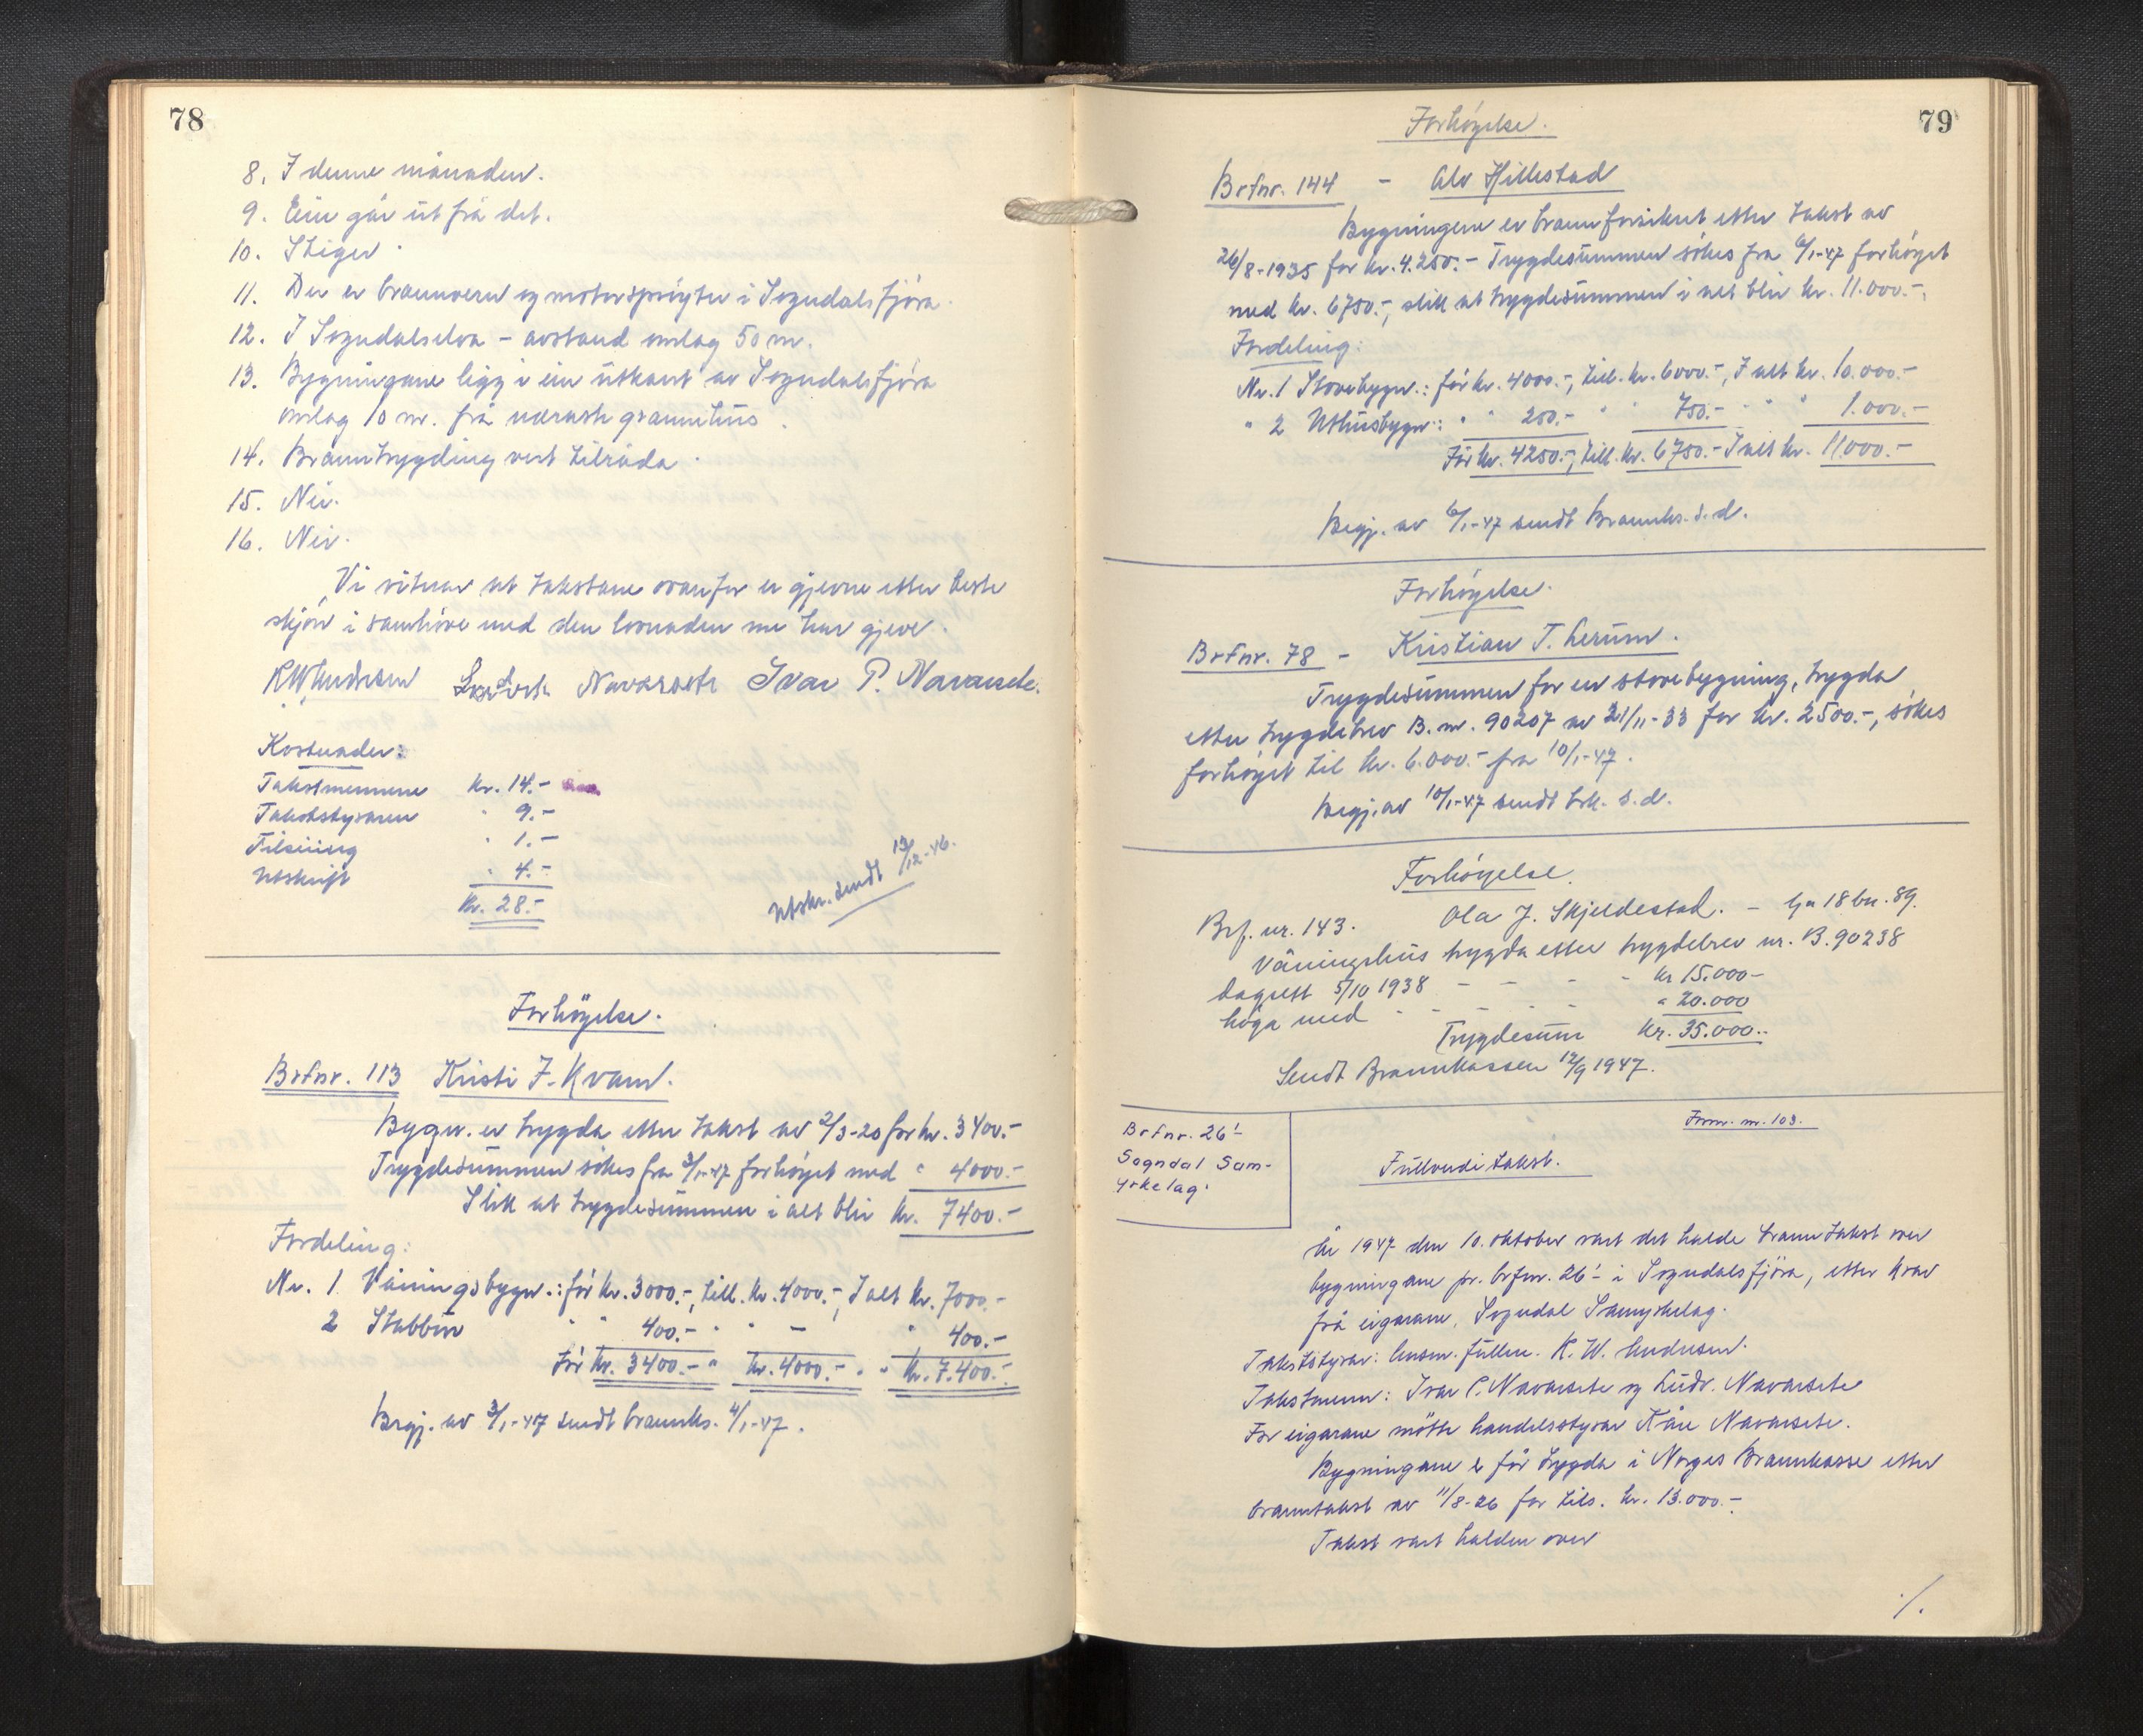 78
8. I denne månaden.
9. Ein går ut frå det.
10. Stiger.
11. Der er brannvern og motorsprøyter i Sogndalsfjøra.
12. I Sogndalselva - avstand omlag 50 m.
13. Bygningane ligg i ein utkant av Sogndalsfjøra
omlag 10 m. frå næraste grannehus.
14. Branntrygding vert tilråda.
15. Nei.
16. Nei.
Vi vitnar at takstane ovanfor er gjevne etter beste
skjøn i samhøve med den lovnaden me har gjeve.
Navarsete Ivar P. Navarsete.
Kostnader:
Takstmennene kr. 14.-
Takststyraren " 9.-
Tilsiing " 1.-
Utskrift " 4.-
Kr. 28.-
Utskr. sendt 13/12-46.
Forhöyelse.
Brfnr. 113 Kristi J. Kvam.
Bygn. er trygda etter takst av 2/3-20 for kr. 3400.-
Trygdesummen sökes fra 3/1-47 forhöyet med " 4000.-
Slik at trygdesummen i alt blir kr. 7400.-
Fordeling:
Nr. 1 Våningsbygn.: för kr. 3000.-, till. kr. 4000.-, I alt kr. 7000.-
2 Stabbur " " 400.- " " - " 400.-
för kr. 3400.- " kr. 4000.- " " kr. 7.400.-
Begj. av 3/1-47 sendt brannks. 4/1-47.
79
Forhöyelse.
Brfnr. 144 - Alv Hillestad
Bygningene er brannforsikret etter takst av
26/8-1935 for kr. 4.250.- Trygdesummen sökes fra 6/1-47 forhöyet
med kr. 6750.-, slik at trygdesummen i alt blir kr. 11.000.-.
Fordeling:
Nr. 1 Stovebygn.: för kr. 4000.-, till. kr. 6000.-, I alt kr. 10.000.-
" 2 Uthusbygn.: " " 250.- " " 750.- " " " 1.000.-
För kr. 4250.-, till. kr. 6750.- I alt kr. 11000.-
Begj. av 6/1-47 sendt Brannks. s.d.
Forhöyelse.
Brfnr. 78 - Kristian T. Lerum.
Trygdesummen for en stovebygning, trygda
etter trygdebrev B. nr. 90207 av 21/11-33 for kr. 2500.-, sökes
forhöyet til kr. 6.000.- fra 10/1-47.
Begj. av 10/1-47 sendt brk. s.d.
Forhöyelse.
Brf. nr. 143. Ola J. Skjeldestad. - Gn 18 bn. 89.
Våningshus trygda etter trygdebrev nr. B. 90238
dagsett 5/10 1938 - - - - kr 15.000-
höga med - - - - " 20.000
Trygdesum Kr. 35.000.-
Sendt Brannkassen 12/9 1947.
Brfnr. 26!-
Sogndal Sam-
yrkelag.
Form. nr. 103.
Fullverdi takst.
År 1947 den 10. oktober vart det halde branntakst over
bygningane på brfnr. 26!- i Sogndalsfjöra, etter krav
frå eigarane, Sogndal Samyrkelag.
Takststyrar: lensm. fullm. K. W. Andresen.
Takstmenn: Ivar P. Navarsete og Ludv. Navarsete
For eigarane mötte handelsstyrar Kåre Navarsete.
Bygningane er för trygda i Norges Brannkasse etter
branntakst av 11/8-26 for tils. kr. 13.000.-
Takst vart halden over
./.